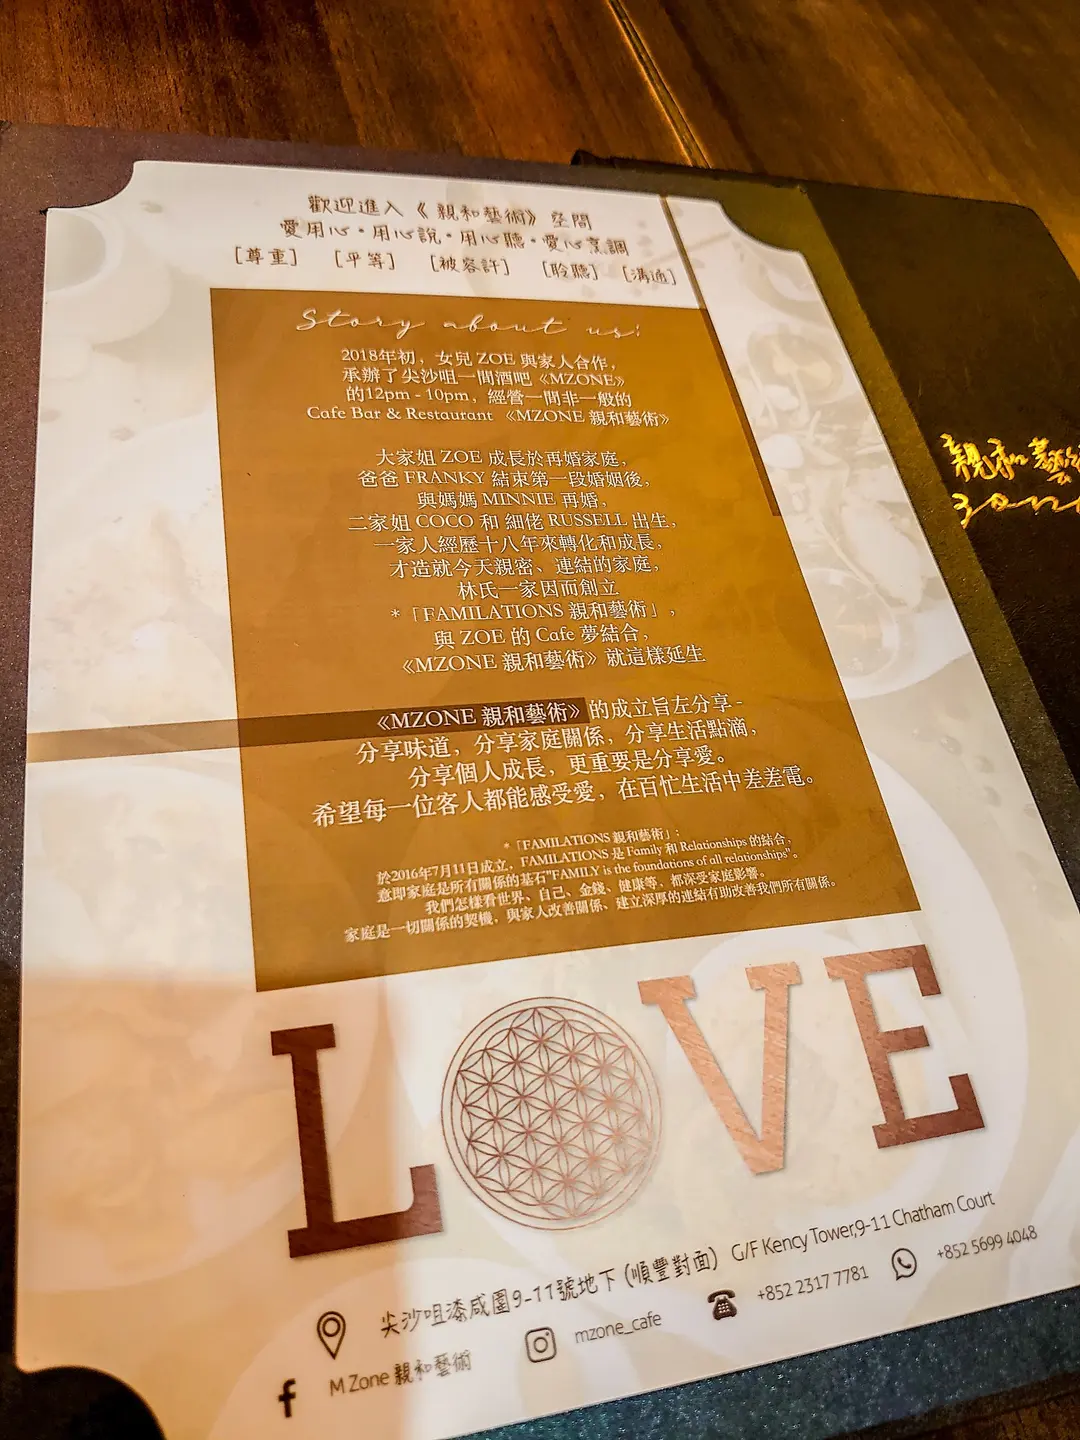 歡迎進入《親和藝術》空間
愛用心·用心說·用心聽·愛心烹調
[尊重] [平等] [被容許] [聆聽] [溝通]
Story about us:
2018年初，女兒 ZOE 與家人合作，
承辦了尖沙咀一間酒吧《MZONE》
的12pm - 10pm，經營一間非一般的
Cafe Bar & Restaurant 《MZONE 親和藝術》
大家姐 ZOE 成長於再婚家庭，
爸爸 FRANKY 結束第一段婚姻後，
與媽媽 MINNIE 再婚，
二家姐 COCO 和 細佬 RUSSELL 出生，
一家人經歷十八年來轉化和成長，
才造就今天親密、連結的家庭，
林氏一家因而創立
*「FAMILATIONS 親和藝術」，
與 ZOE 的 Cafe 夢結合，
《MZONE 親和藝術》就這樣延生
《MZONE 親和藝術》的成立旨左分享 -
分享味道，分享家庭關係，分享生活點滴，
分享個人成長，更重要是分享愛。
希望每一位客人都能感受愛，在百忙生活中差差電。
*「FAMILATIONS 親和藝術」:
於2016年7月11日成立，FAMILATIONS 是 Family 和 Relationships 的結合，
意即家庭是所有關係的基石"FAMILY is the foundations of all relationships"。
我們怎樣看世界、自己、金錢、健康等，都深受家庭影響。
家庭是一切關係的契機，與家人改善關係、建立深厚的連結有助改善我們所有關係。
LOVE
尖沙咀漆咸圍9-11號地下 (順豐對面) G/F Kency Tower,9-11 Chatham Court
M Zone 親和藝術 mzone_cafe +852 2317 7781 +852 5699 4048
親和藝
zone